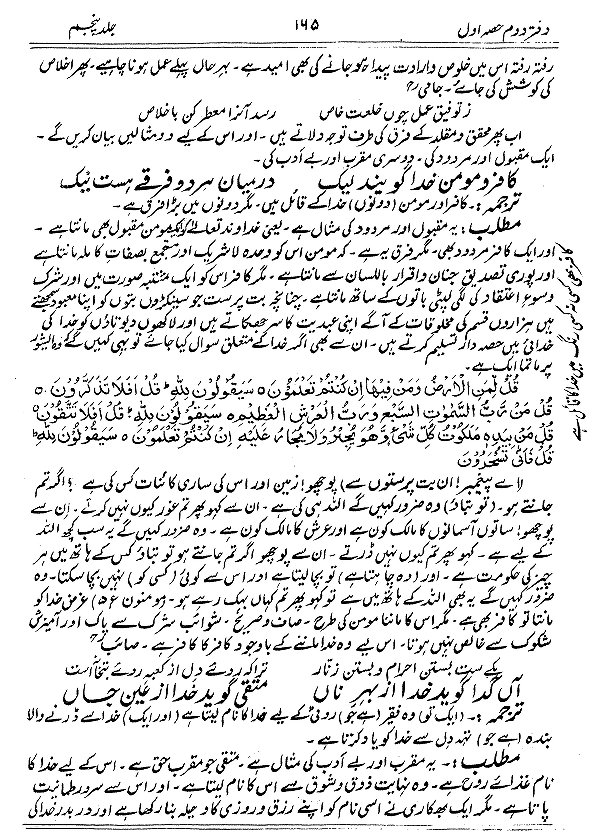 دفتر دوم حصہ اول ۱۶۵ جلد پنجم
رفتہ رفتہ اس میں خلوص و ارادت پیدا ہو جانے کی بھی امید ہے۔ بہر حال پہلے عمل ہونا چاہیے۔ پھر اخلاص
کی کوشش کی جائے۔ جامیؒ
ز توفیق عمل چوں خلعت خاص رسد آنرا معطر کن باخلاص
اب پھر محقق و مقلد کے فرق کی طرف توجہ دلاتے ہیں۔ اور اس کے لیے دو مثالیں بیان کریں گے۔
ایک مقبول اور مردود کی۔ دوسری مقرب اور بے ادب کی۔
کافر و مومن خدا گویند لیک درمیان ہر دو فرقے ہست نیک
ترجمہ:۔ کافر اور مومن (دونوں) خدا کے قائل ہیں۔ مگر دونوں میں بڑا فرق ہے۔
مطلب:۔ یہ مقبول اور مردود کی مثال ہے۔ یعنی خداوند تعالےٰ کو ایک مومن مقبول بھی مانتا ہے۔
اور ایک کافر مردود بھی۔ مگر فرق یہ ہے۔ کہ مومن اس کو وحدہ لا شریک اور مستجمع بصفات کاملہ مانتا ہے
اور پوری تصدیق جنان و اقرار باللسان سے مانتا ہے۔ مگر کافر اس کو ایک مشتبہ صورت میں اور شرک
و سوءِ اعتقاد کی لگی لپٹی باتوں کے ساتھ مانتا ہے۔ چنانچہ بت پرست جو سینکڑوں بتوں کو اپنا معبود سمجھتے
ہیں ہزاروں قسم کی مخلوقات کے آگے اپنی عبدیت کا سر جھکاتے ہیں اور لاکھوں دیوتاؤں کو خدا کی
خدائی میں حصہ دار تسلیم کرتے ہیں۔ ان سے بھی اگر خدا کے متعلق سوال کیا جائے تو یہی کہیں گے کہ وہ ایشور
پرماتما ایک ہے۔
کافر بھی کسی نہ کسی رنگ میں خدا کا قائل ہے
قُلْ لِّمَنِ الْاَرْضُ وَمَنْ فِیْهَا اِنْ كُنْتُمْ تَعْلَمُوْنَ ۝ سَیَقُوْلُوْنَ لِلّٰهِ ؕ قُلْ اَفَلَا تَذَكَّرُوْنَ ۝
قُلْ مَنْ رَّبُّ السَّمٰوٰتِ السَّبْعِ وَرَبُّ الْعَرْشِ الْعَظِیْمِ ۝ سَیَقُوْلُوْنَ لِلّٰهِ ؕ قُلْ اَفَلَا تَتَّقُوْنَ ۝
قُلْ مَنْ بِیَدِهٖ مَلَكُوْتُ كُلِّ شَیْءٍ وَّهُوَ یُجِیْرُ وَلَا یُجَارُ عَلَیْهِ اِنْ كُنْتُمْ تَعْلَمُوْنَ ۝ سَیَقُوْلُوْنَ لِلّٰهِ ؕ
قُلْ فَاَنّٰی تُسْحَرُوْنَ
(اے پیغمبر! ان بت پرستوں سے) پوچھو! زمین اور اس کی ساری کائنات کس کی ہے؟ اگر تم
جانتے ہو۔ (تو بتاؤ) وہ ضرور کہیں گے اللہ ہی کی ہے۔ ان سے کہو پھر تم غور کیوں نہیں کرتے۔ ان سے
پوچھو! ساتوں آسمانوں کا مالک کون ہے اور عرش کا مالک کون ہے۔ وہ ضرور کہیں گے یہ سب کچھ اللہ
کے لیے ہے۔ کہو پھر تم کیوں نہیں ڈرتے۔ ان سے پوچھو اگر تم جانتے ہو تو بتاؤ کس کے ہاتھ میں ہر
چیز کی حکومت ہے۔ اور (وہ چاہتا ہے) تو بچا لیتا ہے اور اس سے کوئی (کسی کو) نہیں بچا سکتا۔ وہ
ضرور کہیں گے یہ بھی اللہ کے ہاتھ میں ہے تو کہو پھر تم کہاں بہک رہے ہو۔ (مومنون ع۵) غرض خدا کو
مانتا تو کافر بھی ہے۔ مگر اس کا ماننا مومن کی طرح۔ صاف و صریح۔ شوائب شرک سے پاک اور آمیزش
شکوک سے خالص نہیں ہوتا۔ اس لیے وہ خدا ماننے کے باوجود کافر کا کافر ہے۔ صائبؒ
یکے ست بستن احرام و بستن زنار ترا کہ روئے دل از کعبہ روئے بتخانست
آں گدا گوید خدا از بہر ناں متقی گوید خدا از عین جاں
ترجمہ:۔ (ایک تو) وہ فقیر (ہے جو) روٹی کے لیے خدا کا نام لیتا ہے (اور ایک) خدا سے ڈرنے والا
بندہ (ہے جو) تہہ دل سے خدا کو یاد کرتا ہے۔
مطلب:۔ یہ مقرب اور بے ادب کی مثال ہے۔ متقی جو مقرب حق ہے۔ اس کے لیے خدا کا
نام غذائے روح ہے۔ وہ نہایت ذوق و شوق سے اس کا نام لیتا ہے۔ اور اس سے سرور و طمانیت
پاتا ہے۔ مگر ایک بھکاری نے اسی نام کو اپنے رزق و روزی کا وسیلہ بنا رکھا ہے اور در بدر خدا کی